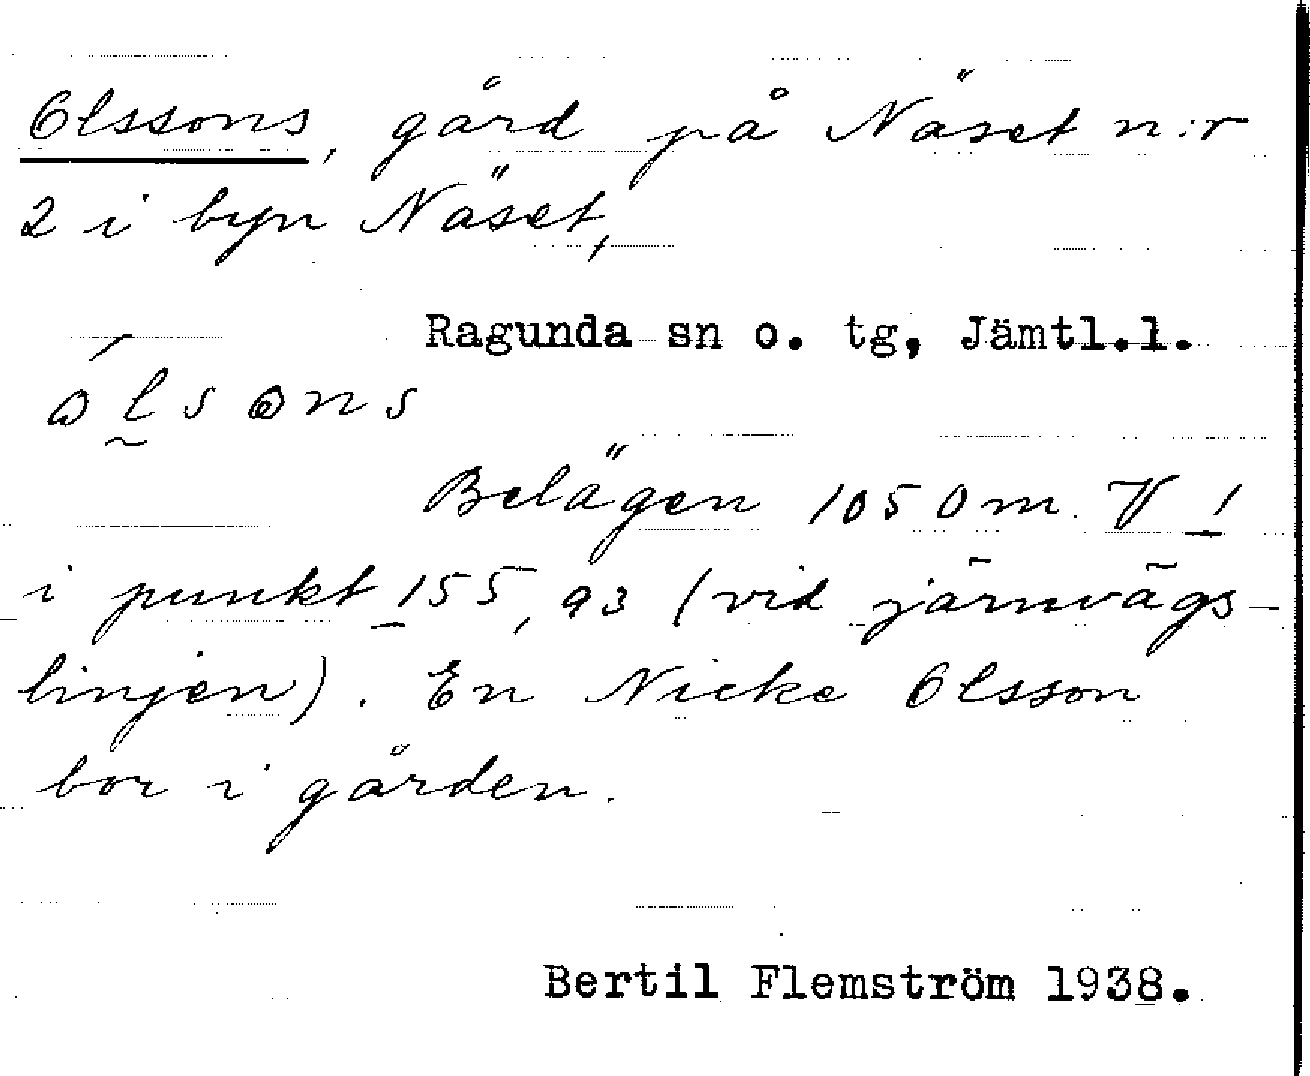 Olssons, gård på Näset n:r
2 i byn Näset,
Ragunda sn o. tg, Jämtl.l.
ólsons
Belägen 1050 m. V 1
i punkt 155,93 (vid järnvägs-
linjen). En Nicke Olsson
bor i gården.
Bertil Flemström 1938.